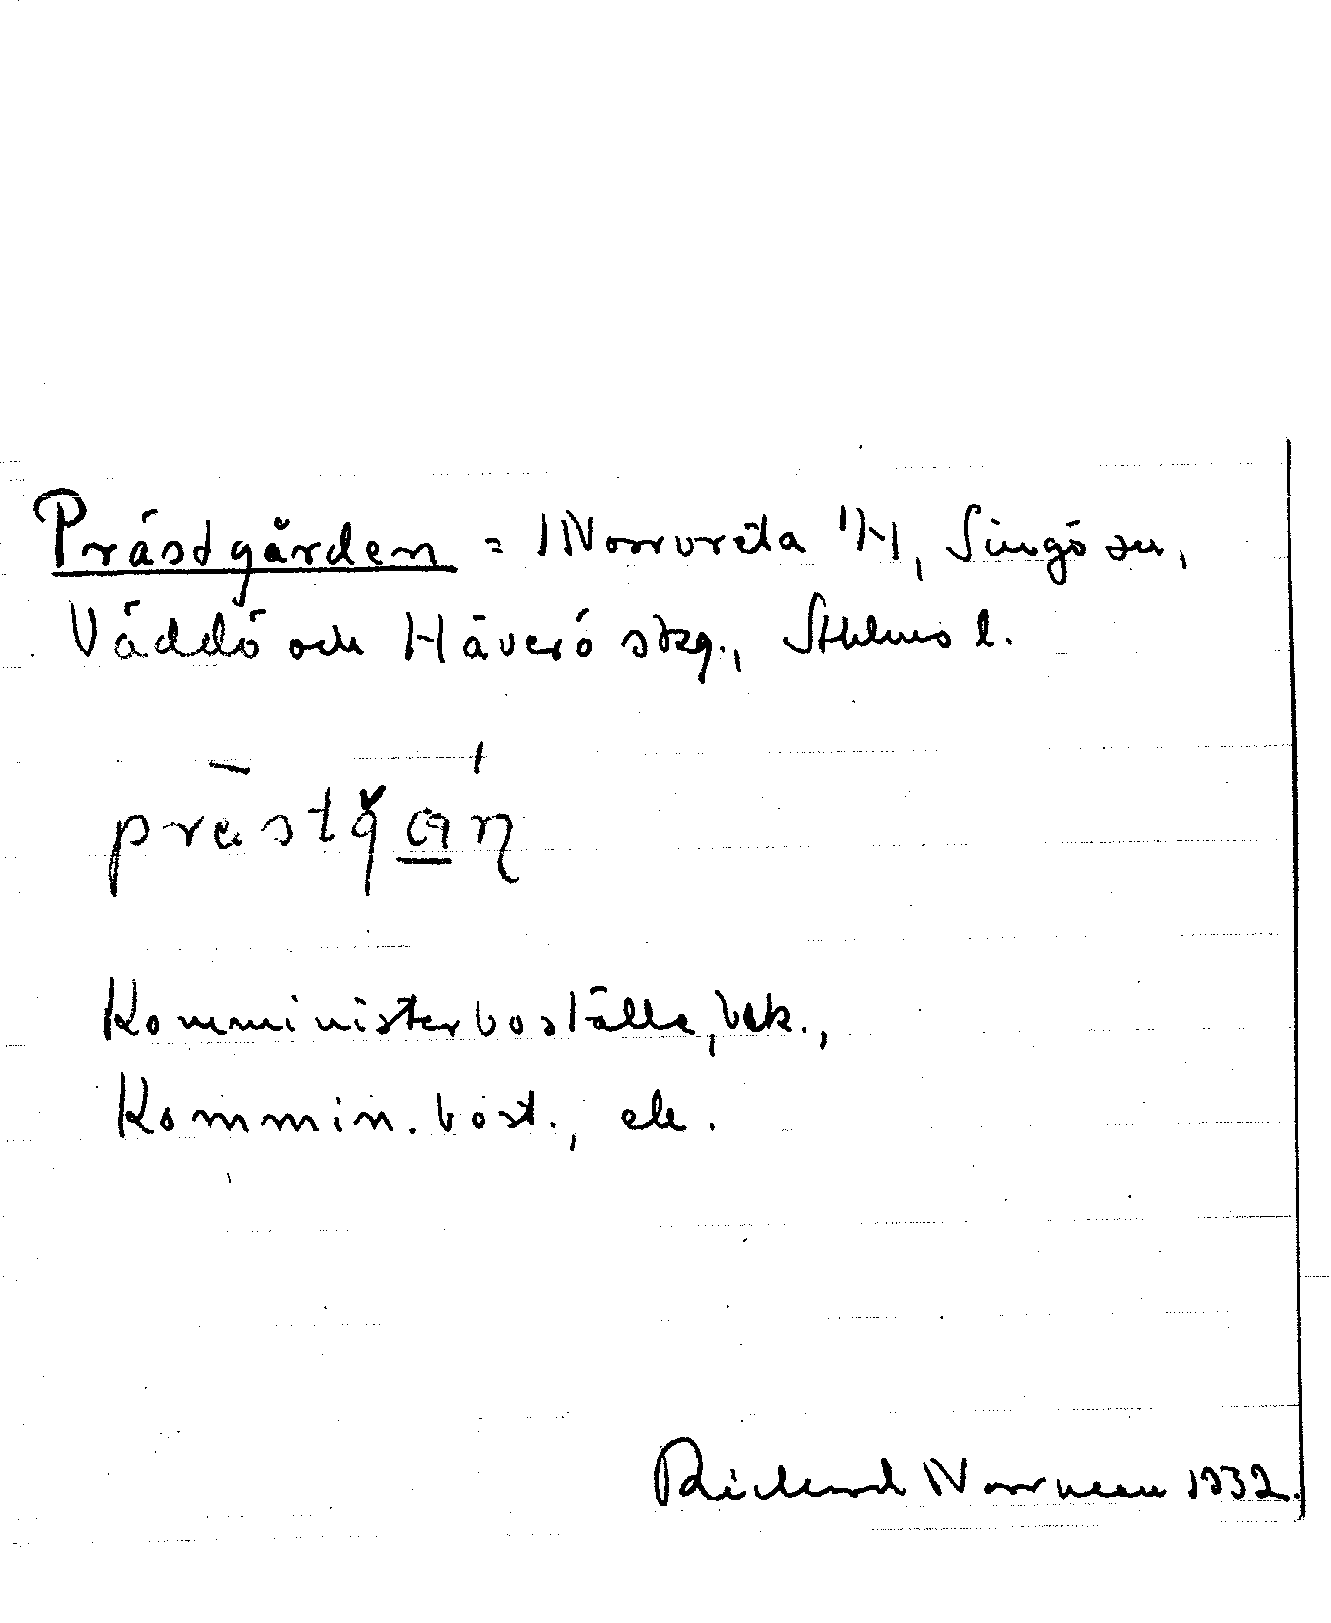 Prästgården = Norrvreta 1/4, Singö sn,
Väddö och Häverö skg., Sthlms l.
prästgan
Komministerboställe, bek.,
Kommin. bost., ek.
Rickard Norrman 1932.